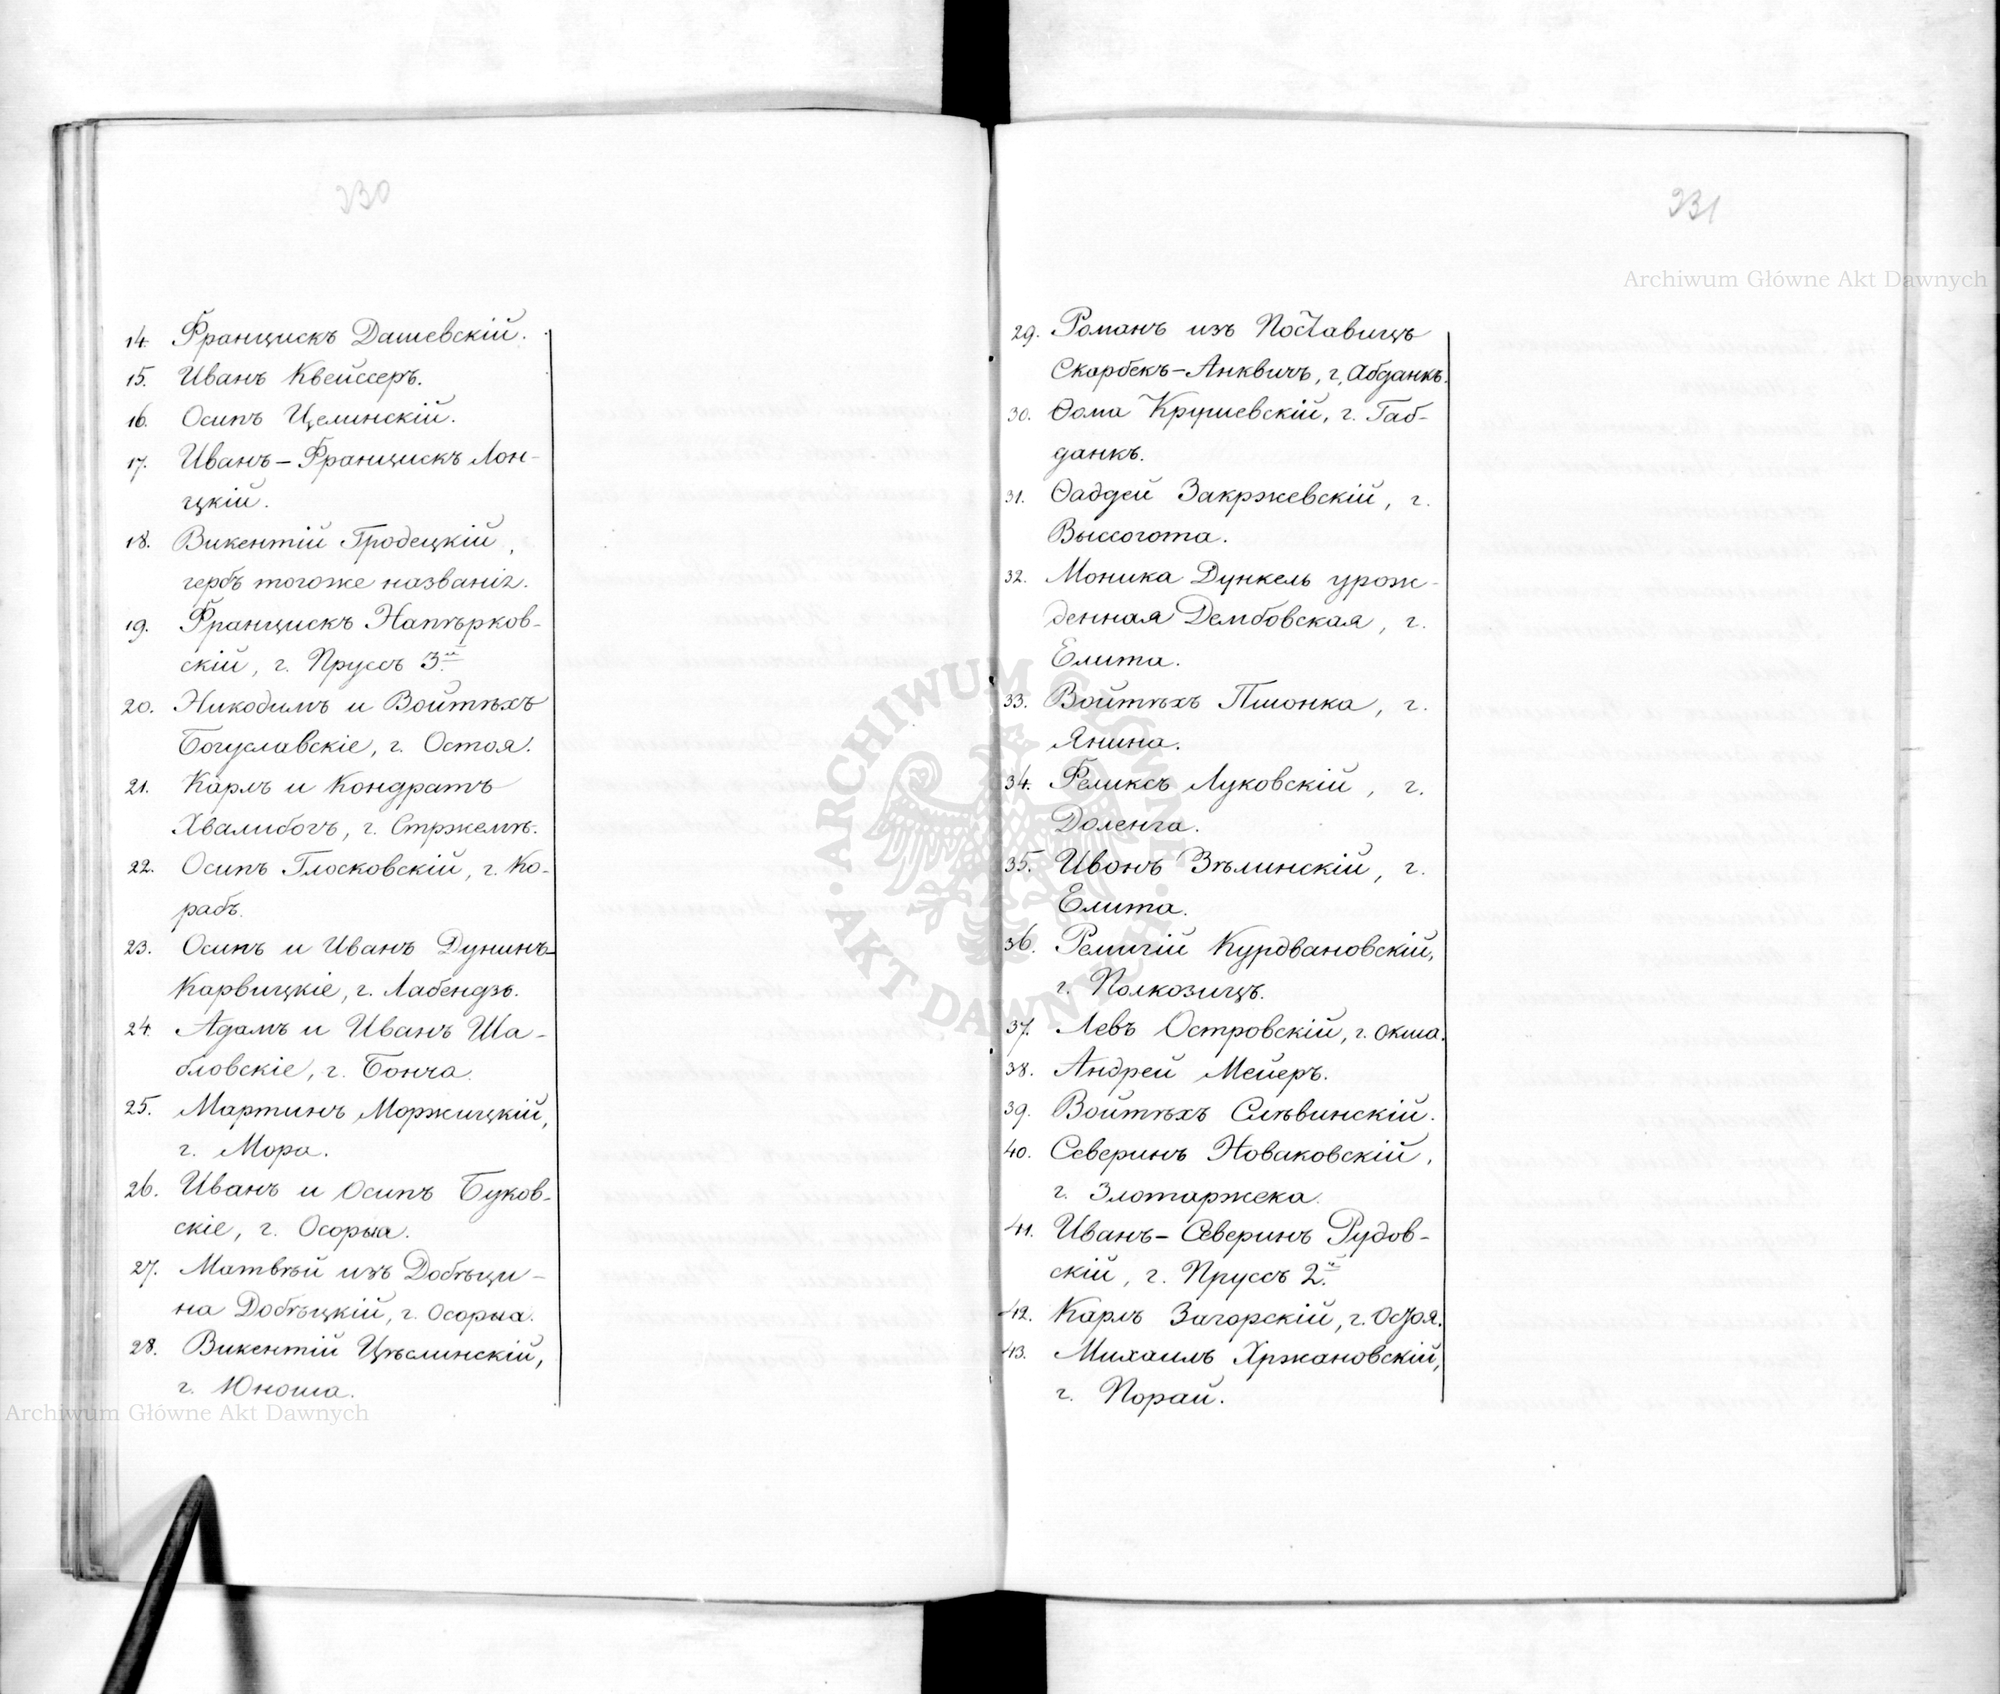 330
14. Францискъ Дашевскій.
15. Иванъ Квейссеръ.
16. Осипъ Целинскій.
17. Иванъ-Францискъ Лон-
цкій.
18. Викентій Гродецкій,
гербъ тогоже названія.
19. Францискъ Напѣрков-
скій, г. Пруссъ 3й.
20. Никодимъ и Войтѣхъ
Богуславскіе, г. Остоя.
21. Карлъ и Кондратъ
Хвалибогъ, г. Стржемѣ.
22. Осипъ Глосковскій, г. Ко-
рабъ.
23. Осипъ и Иванъ Дунинъ-
Карвицкіе, г. Лабендзь.
24. Адамъ и Иванъ Ша-
бловскіе, г. Бонча.
25. Мартинъ Моржицкій,
г. Мора.
26. Иванъ и Осипъ Буков-
скіе, г. Осорыа.
27. Матвѣй изъ Добѣци-
на Добѣцкій, г. Осорыа.
28. Викентій Цѣслинскій,
г. Юноша.
Archiwum Główne Akt Dawnych
331
Archiwum Główne Akt Dawnych
29. Романъ изъ Поставицъ
Скарбекъ-Анквичъ, г. Абданкъ.
30. Ѳома Крушевскій, г. Габ-
данкъ.
31. Ѳаддей Закржевскій, г.
Выссогота.
32. Моника Дункель урож-
денная Дембовская, г.
Елита.
33. Войтѣхъ Пшонка, г.
Янина.
34. Феликсъ Луковскій, г.
Доленга.
35. Иванъ Зѣлинскій, г.
Елита.
36. Ремигій Курдвановскій,
г. Полкозицъ.
37. Левъ Островскій, г. Окша.
38. Андрей Мейеръ.
39. Войтѣхъ Слѣвинскій.
40. Северинъ Новаковскій,
г. Злотаржека.
41. Иванъ-Северинъ Рудов-
скій, г. Пруссъ 2й.
42. Карлъ Загорскій, г. Остоя.
43. Михаилъ Хржановскій,
г. Порай.
ARCHIWUM GŁÓWNE AKT DAWNYCH